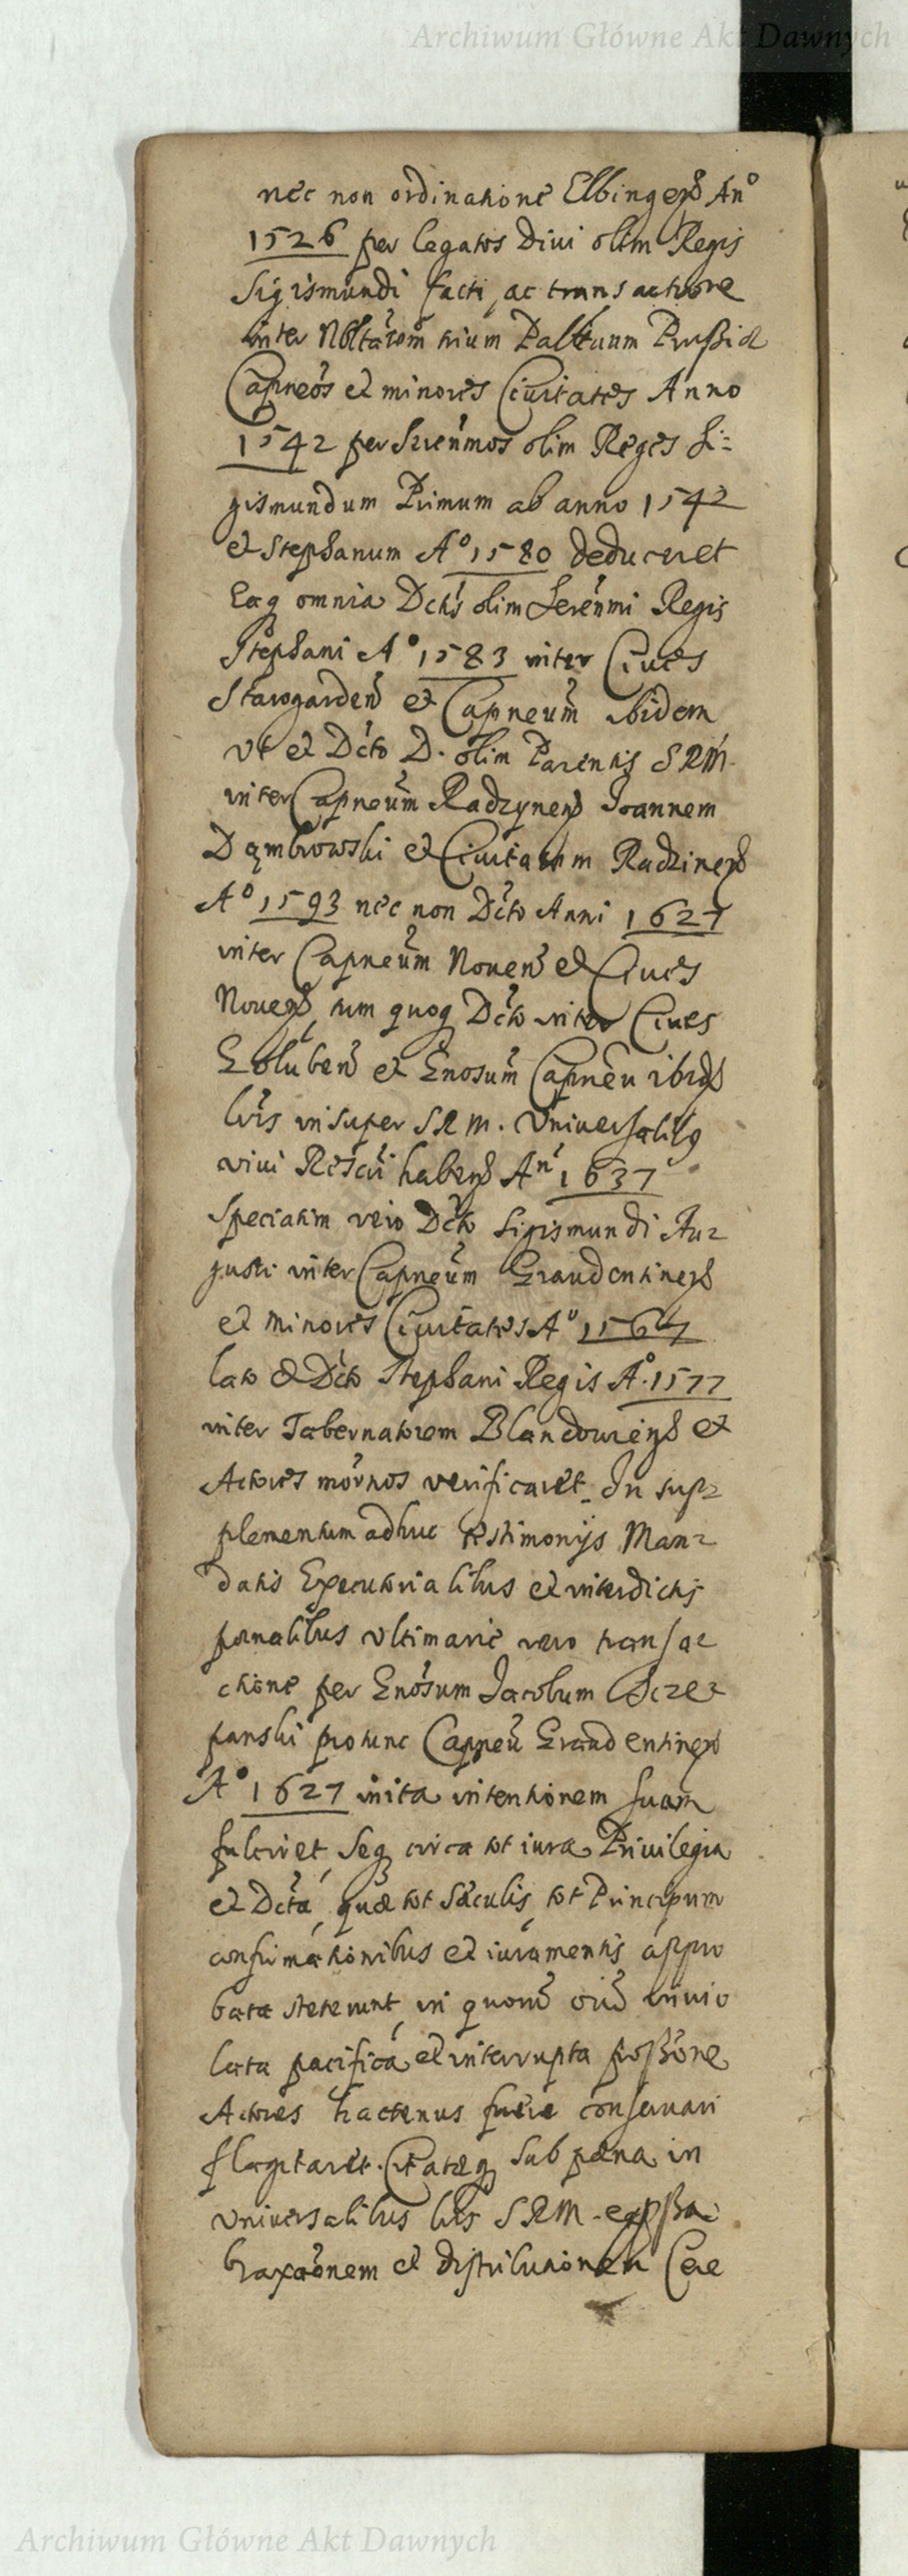 Archiwum Główne Akt Dawnych
nec non ordinatione Elbingens Ano
1526 per legatos Divi olim Regis
Sigismundi facti, ac transactione
inter Nbltatem trium Palttuum Prußiæ
Capneos et minores Civitates Anno
1542 per Serenmos olim Reges Si=
gismundum Primum ab anno 1542
et Stephanum Ao 1580 deduceret
Eaq omnia Dctis olim Serenmi Regis
Stephani Ao 1583 inter Cives
Starogarden et Capneum ibidem
vt et Dcto D. olim Parentis SRM.
inter Capneum Radzynens Joannem
Dąmbrowski et Civitatem Radzinens
Ao 1593 nec non Dcto Anni 1627
inter Capneum Noven et Cives
Novens, tum quoq Dcto inter Cives
Goluben et Gnosum Capneu ibids
lris insuper SRM. Universalibq
vim Rescti habens Ann 1637
Speciatim vero Dcto Sigismundi Au=
gusti inter Capneum Graudentinens
et minores Civitates Ao 1564
lato & Dcto Stephani Regis Ao. 1577
inter Tabernatorem Blandowens et
Actores mornos verificaret. In sup=
plementum adhuc testimonijs Man=
datis Executorialibus et interdictis
pœnalibus ultimarie vero transac=
ctione per Gnosum Jacobum Szcze=
panski protunc Capneu Graudentinens
Ao 1627 inita intentionem suam
fulciret, Seq circa tot iura Privilegia
et Dcta, quæ tot Sæculis, tot Principum
confirmationibus et iuramentis appro
bata steterunt, in quorum oium invio
lata pacifica et interrupta poßone
Actores hactenus fuere conservari
flagitaret. Citatæq sub pœna in
Universalibus lris SRM. expßa
braxaonem et distributionem Cere
Archiwum Główne Akt Dawnych